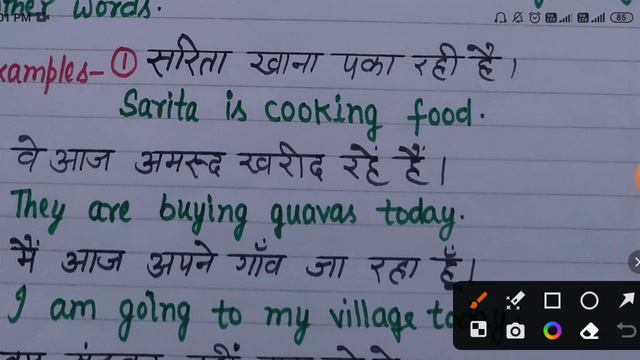 ther words.
01 PM 85
xamples- ① सरिता खाना पका रही है।
Sarita is cooking food.
वे आज अमरूद खरीद रहें हैं।
They are buying guavas today.
मैं आज अपने गाँव जा रहा हूँ।
I am going to my village today